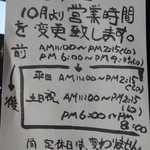 10月より営業時間
を変更致します。
前 AM11:00〜PM2:15(LO)
PM6:00〜PM9:45(LO)
後 平日 AM11:00〜PM2:15(LO)
土日祝 AM11:00〜PM2:15(LO)
PM6:00〜PM8:00(LO)
尚 定休日は、変わりません。